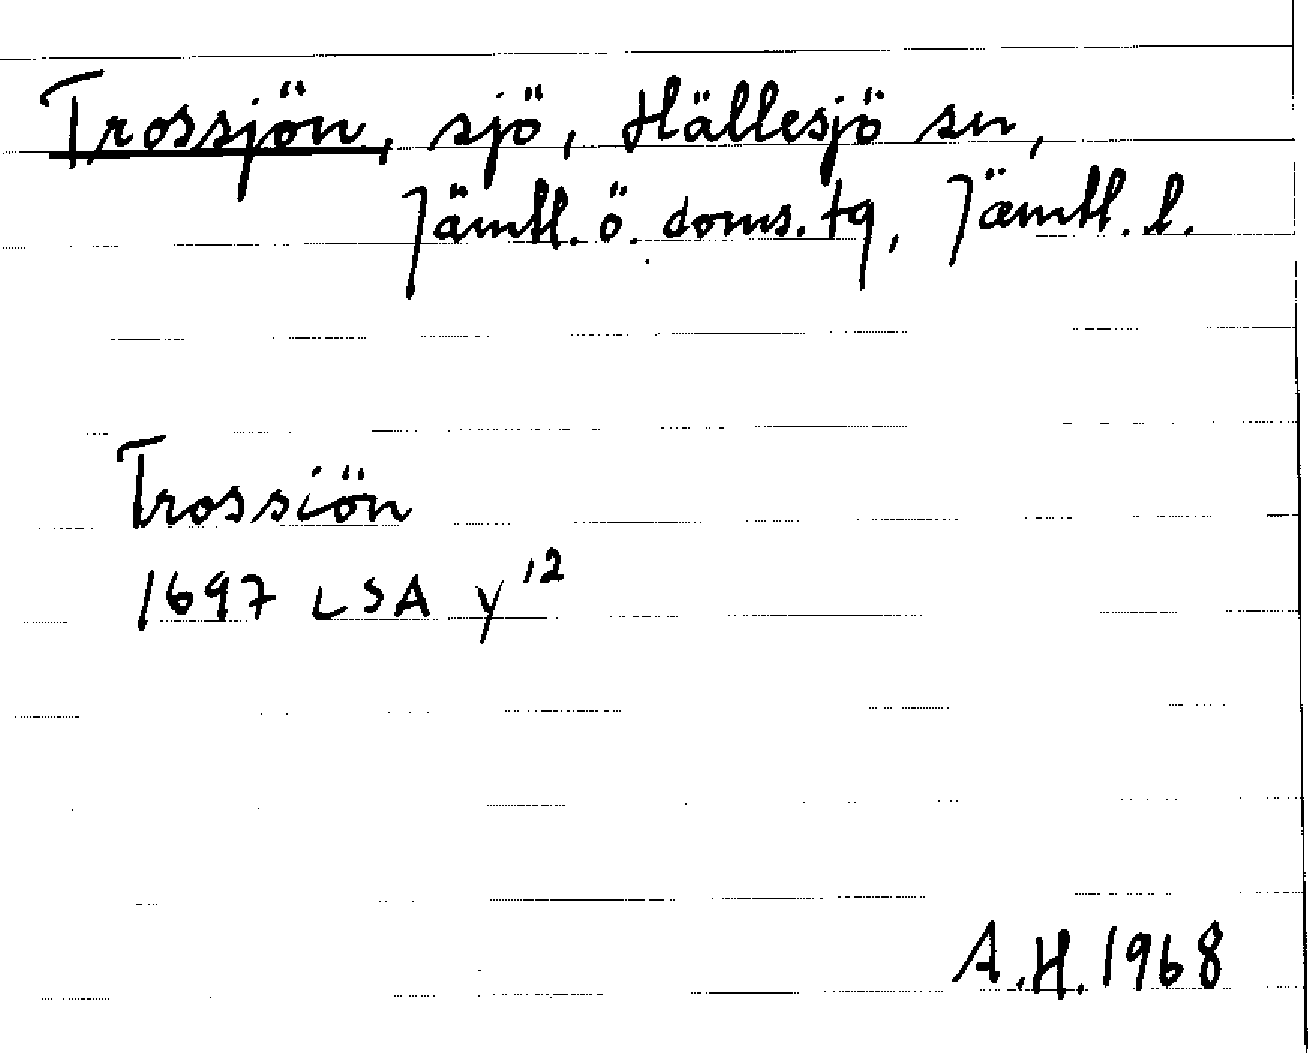 Trossjön, sjö, Hällesjö sn,
Jämtl. ö. doms. tg, Jämtl. l.
Trossiön
1697 LSA y¹²
A.H. 1968